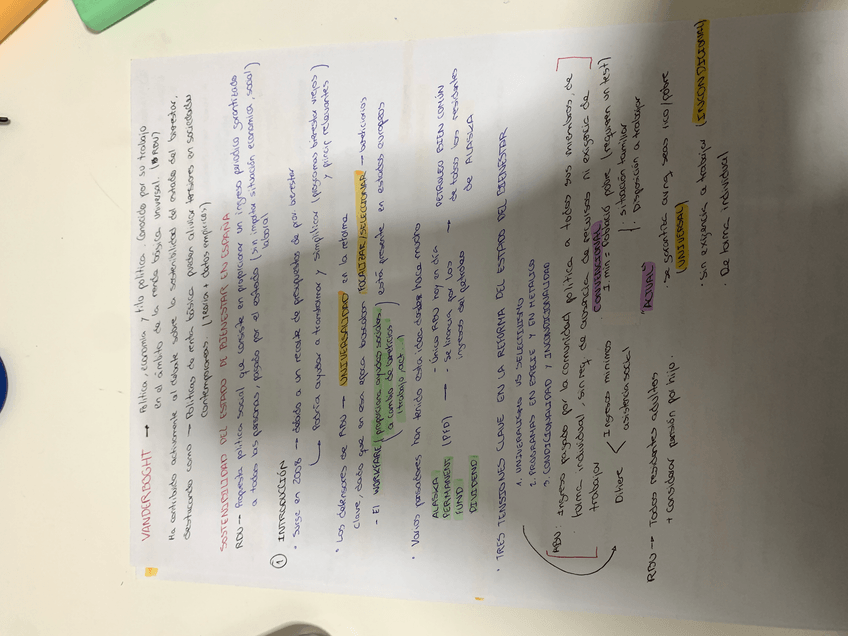 VANDERBOGHT → Política, economía y filo política. Conocido por su trabajo
en el ámbito de la renta básica universal. (RDU)
Ha contribuido activamente al debate sobre la sostenibilidad del estado del bienestar,
destacando como → Políticas de renta básica pueden aliviar tensiones en sociedades
contemporáneas. (teoría + datos empíricos)
SOSTENIBILIDAD DEL ESTADO DE BIENESTAR EN ESPAÑA
RDU → Propuesta política social que consiste en proporcionar un ingreso periódico garantizado
a todas las personas, pagado por el estado (sin importar situación económica, social
laboral)
① INTRODUCCIÓN
• Surge en 2008 → debido a un recorte de presupuestos de pro bienestar
↳ Podría ayudar a transformar y simplificar (programas bienestar viejos
y princip relevantes)
• Los defensores de RDU → UNIVERSALIDAD en la reforma
clave, dado que en esa época buscaban FOCALIZAR/SELECCIONAR → beneficiarios
- El WORKFARE (proporciona ayudas sociales) está presente en estados europeos
(a cambio de beneficios)
(trabajo, act...)
• Varios pensadores han tenido esta idea desde hace mucho
ALASKA PERMANENT FUND DIVIDEND (PFD) → · Única RDU hoy en día
· Se financia por los ingresos del petróleo → PETRÓLEO BIEN COMÚN de todos los residentes de ALASKA
• TRES TENSIONES CLAVE EN LA REFORMA DEL ESTADO DEL BIENESTAR
1. UNIVERSALISMO VS SELECTIVISMO
2. PROGRAMAS EN ESPECIE Y EN METÁLICO
3. CONDICIONALIDAD Y INCONDICIONALIDAD
RDU: Ingreso pagado por la comunidad política a todos sus miembros, de
forma individual, sin req. de ausencia de recursos ni exigencia de
trabajar
CONDICIONAL
Difiere < Ingresos mínimos
asistencia social
I. min = Población pobre (requieren un test)
: situación familiar
: Disposición a trabajar
RDU → Todos residentes adultos
+ Considerar pensión por hijo.
"ACTUAL"
· Se garantiza aunq seas rico/pobre
(UNIVERSAL)
· Sin exigencia a trabajar (INCONDICIONAL)
· De forma individual